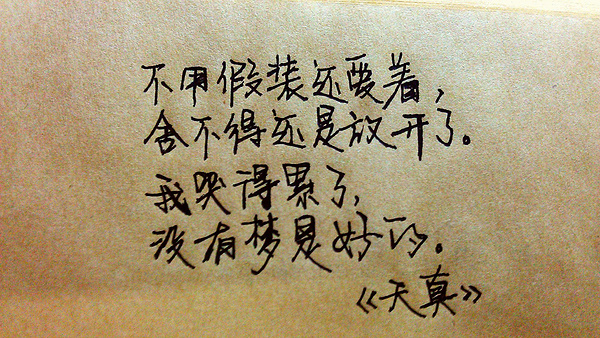 不用假装还爱着,
舍不得还是放开了。
我哭得累了,
没有梦是好的。
《天真》